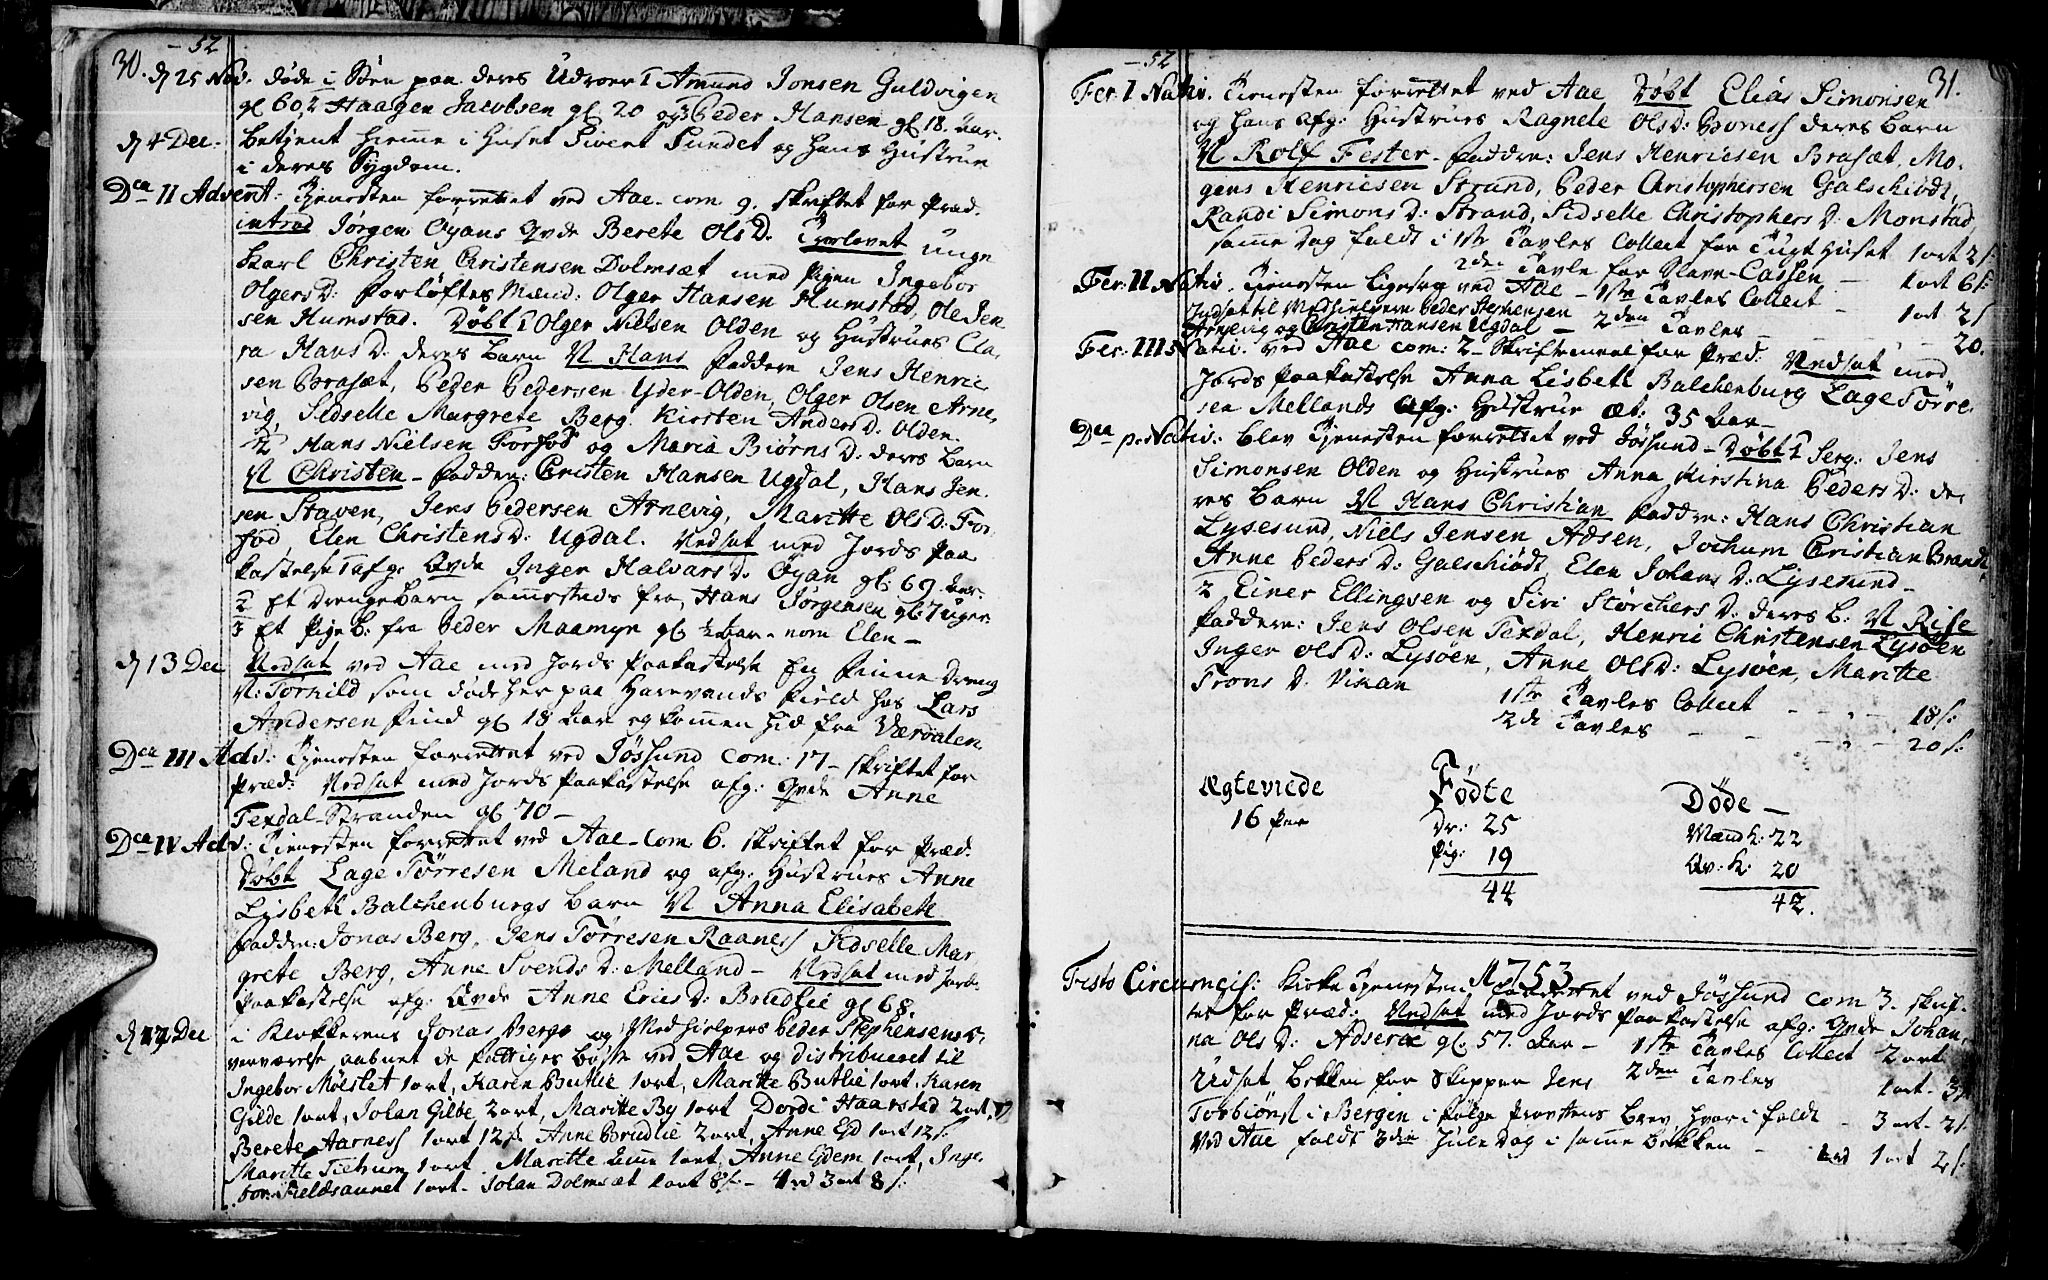 30. - 52
d 25 Nov. døde i Søen paa deres Udroer 1 Amund Jonsen Guldvigen
gl 60, 2 Haagen Jacobsen gl 20 og 3 Peder Hansen gl 18. Aar.
d 4 Dec. betjent hieme i Huset Sivert Sundet og hans Hustrue
i deres Sygdom.
Dca II Advent: Tjenesten forrettet ved Aae. com 9. skriftet for Præd.
introd Jørgen Øyans Qvde Berete Ols D. Trolovet unge
Karl Christen Christensen Dolmsæt med Pigen Ingebor
Olgers D: Forløftes Mænd: Olger Hansen Humstad, Ole Jen
sen Humstad. Døbt 1 Olger Nielsen Olden og Hustrues Cla,
ra Hans D: deres Barn N Hans Faddere Jens Henric
sen Brasæt, Peder Pedersen Yder-Olden, Olger Olsen Arne,
vig, Sidselle Margrete Berg. Kirsten Anders D: Olden.
2 Hans Nielsen Forfod og Maria Biørns D: deres Barn
N Christen - Faddre: Christen Hansen Ugdal, Hans Jen
sen Staven, Jens Pedersen Arnevig, Maritte Ols D: For
fod Elen Christens D: Ugdal. Nedsat med Jords Paa
kastelse 1 afg: Qvde Inger Halvars D. Øyan gl: 69 Aar.
2 Et Drengebarn sammesteds fra, Hans Jørgensen gl: 7 uger.
3 Et Pige B: fra Peder Maamyr gl ½ Aar - nom Elen -
d 13 Dec Nedsat ved Aae med Jords Paakastelse En Finne Dreng
N: Tornild som døde her paa Harevands Field hos Lars
Andersen Find gl 18 Aar og kommen hid fra Værdalen.
Dca III Adv: Tjenesten forrettet ved Jøssund com: 17 - skriftet for
Præd: Nedsat med Jords Paakastelse afg: Qvde Anne
Texdal-Stranden gl 70 -
Dca IV Adv: Tienesten forrettet ved Aae - com 6. skriftet for Præd.
Døbt Lage Tørresen Meland og afg: Hustrues Anne
Lisbeth Balchenburgs Barn N Anna Elisabeth
Faddre: Jonas Berg, Jens Tørresen Raaness Sidselle Mar
grete Berg, Anne Svends D: Melland - Nedsat med Jords
Paakastelse afg: Qvde Anne Erics D: Brudlie gl 68.
Dec i Klokkerens Jonas Bergs og Medhielpers Peder Stephensens
værværelse aabnet de fattiges Bøsse ved Aae og distribueret til
Ingebor Mølslet 1 ort, Karen Butlie 1 ort, Maritte Butlie 1 ort, Karen
Gilde 1 ort, Johan Gilde 2 ort, Maritte By 1 ort Dordi Haarstad 2 ort,
Berete Aarness 1 ort 12 s. Anne Brudlie 2 ort, Anne Eid 1 ort 12 s.
Maritte 1 ort. Maritte 1 ort, Anne Edem 1 ort, Inge,
bor Fieldsaunet 1 ort. Johan Dolmsæt 1 ort 8 s - 4 rd 3 ort 8 s.
- 52 31.
Fer: I Nativ. Tienesten forrettet ved Aae Døbt Elias Simonsen
og hans afg: Hustrues Ragnele Ols D: Boness deres Barn
N Rolf Fester - Faddre: Jens Henricsen Brasæt, Mo,
gens Henricsen Strand, Peder Christophersen Galschiødt,
Randi Simons D: Strand, Sidselle Christophers D: Monstad,
samme Dag faldt i 1ste Tavles Collect for Tugt Huset 1 ort 2 s.
2den Tavle for Slave-Cassen - 1 ort 6 s.
Fer: II Nativ. Tjenesten ligesaa ved Aae - 1ste Tavles Collect - 1 ort 2 s
Indsat til Medhielpere Peder Stephensen
Arnevig og Christen Hansen Ugdal - 2den Tavles - - - 20.
Fer: III Nativ. ved Aae com: 2 - Skriftemaal for Præd: Nedsat med
Jords Paakastelse Anna Lisbeth Balchenburg Lage Tørre,
sen Mellands afg: Hustrue æt: 35 Aar -
Dca p. Nativ: blev Tjenesten forrettet ved Jøssund - Døbt 1 Serg: Jens
Simonsen Olden og Hustrues Anna Kirstina Peders D: de,
res Barn N Hans Christian Faddre: Hans Christian
Lysesund, Niels Jensen Adsen, Jochum Christian Brandt,
Anne Peders D: Galschiødt Elen Johans D: Lysesund -
2 Einer Ellingsen og Siri Størchers D: deres B: N Rise
Faddere: Jens Olsen Texdal, Henric Christensen Lysøen
Inger Ols D: Lysøen, Anne Ols D: Lysøen, Maritte
Trons D: Vikan
1ste Tavles Collect - - - 18 s.
2de Tavles - - - - 20 s.
Ægteviede Fødte Døde -
16 Par Dr: 25 Mænd k: 22
Pig: 19 Qv: k: 20
44 42.
A 1753
Festo Circumcis: Kirke Tjenesten forrettet ved Jøssund com 3. skrif,
tet for Præd: Nedsat med Jords Paakastelse afg: Qvde Johan,
na Ols D: Adseræ gl. 57. Aar - 1ste Tavles Collect 2 ort
Udsat Bekken for Skipper Jens 2den Tavles 1 ort - 3 s.
Torbiørns i Bergen i følge Provstens Brev, hvori faldt - 3 ort - 2 s.
Ved Aae faldt 3die Jule Dag i samme Bekken - 1 ort 2 s.